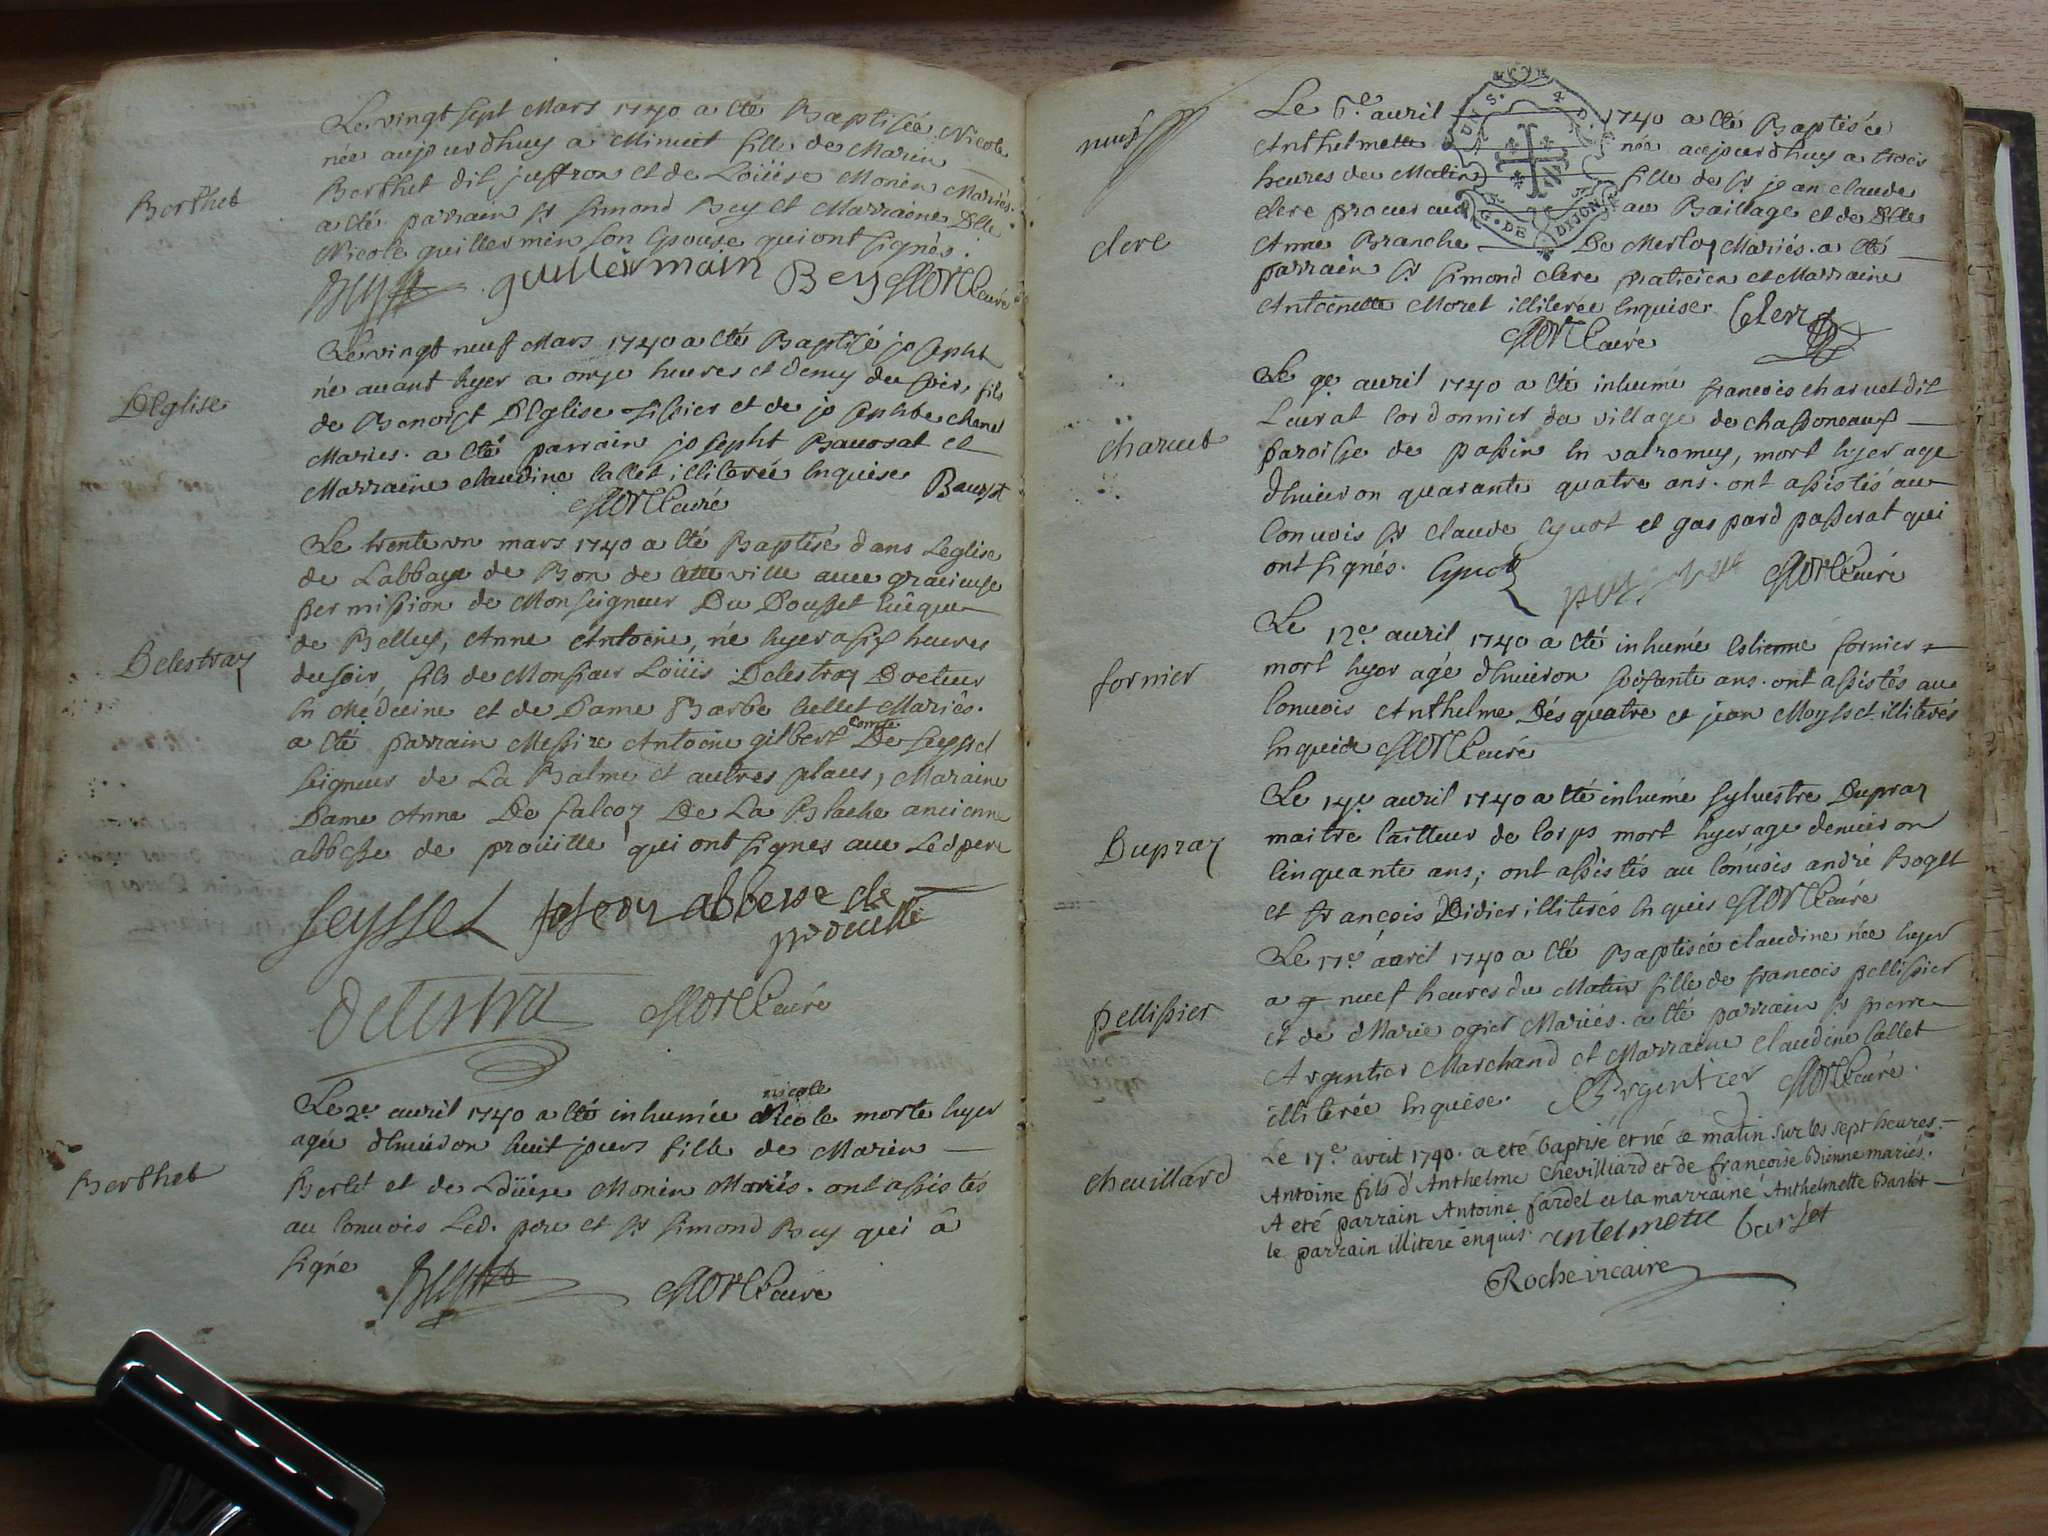 Berthet
Le vingt sept Mars 1740 a Eté Baptisée Nicole
née aujourdhuy a Minuit fille de Marin
Berthet dit juffron et de Loüise Monin Mariés.
a été parrain Sr Simond Bey et Marraine Dlle
Nicole guillermin son Epouse qui ont signés.
guillermain Bey Curé
DEglise
Le vingt neuf Mars 1740 a Eté Baptisé joseph
né avant hyer a onze heures et demy du soir, fils
de Benoist DEglise tissier et de josephte chanel
Mariés. a Eté parrain joseph Bavosat et
Marraine claudine Callet illiterée Enquise
Curé
Delestraz
Le trente un mars 1740 a Eté Baptisé dans Leglise
de Labbaye de Bon de Cette ville avec gracieuse
permission de Monseigneur Du Dousset Evêque
de Belley, Anne Antoine, né hyer a six heures
du soir fils de Monsieur Loüis Delestraz Docteur
En Médecine et de Dame Barbe Cullet Mariés.
a Eté parrain Messire Antoine gilbert Comte De Seyssel
seigneur de La Balme et autres places, Maraine
Dame Anne De falcoz De La Blache ancienne
abbesse de proüille qui ont signes avec Led pere
Seyssel falcoz abbesse de
proüille
Delestra Curé
Berthet
Le 2e avril 1740 a Eté inhumée nicole morte hyer
agée dhuiron huit jours fille de Marin
Bertet et de Loüise Monin Mariés. ont assistés
au Convois Led. pere et Sr Simond Bey qui â
signé
Curé
clerc
Le 6e avril 1740 a Eté Baptisée
Anthelmette née aujourdhuy a trois
heures du Matin fille de Sr jean claude
clerc procureur au Bailliage et de Dlle
Anne Branche De Merloz Mariés. a Eté
parrain Sr Simond clerc praticien et Marraine
Antoinette Moret illiterée Enquise. Clerc
Curé
charvet
Le 9e avril 1740 a Eté inhumé francois charvet dit
Laurat Cordonnier du village de chassoneaux
paroisse de passin En valromey, mort hyer age
dhuiron quarante quatre ans. ont assistés au
Convois Sr claude Eynot et gaspard passerat qui
ont signés. Curé
fornier
Le 12e avril 1740 a Eté inhumé Estienne fornier
mort hyer agé dhuiron soisante ans. ont assistés au
Convois Anthelme Désquatre et jean Moysset illiterés
Enquis Curé
Dupraz
Le 14e avril 1740 a Eté inhumé Sylvestre Dupraz
maitre tailleur de Corps mort hyer age denviron
Cinquante ans; ont assistés au Convois andré Boget
et françois Didier illiterés Enquis Curé
pellissier
Le 17e avril 1740 a Eté Baptisée claudine née hyer
a neuf heures du Matin fille de francois pellissier
et de Marie ogier Mariés. a Eté parrain Sr pierre
Argentier Marchand et Marraine claudine Callet
illiterée Enquise. Argentier Curé.
chevillard
Le 17.e avril 1740. a eté baptisé et né ce matin sur les sept heures.
Antoine fils d'Anthelme Chevilliard et de françoise Bienne mariés.
A eté parrain Antoine fardel et la marraine Anthelmette Barlet
le parrain illiteré enquis. antelmette barlet
Roche vicaire
G. DE DIJON